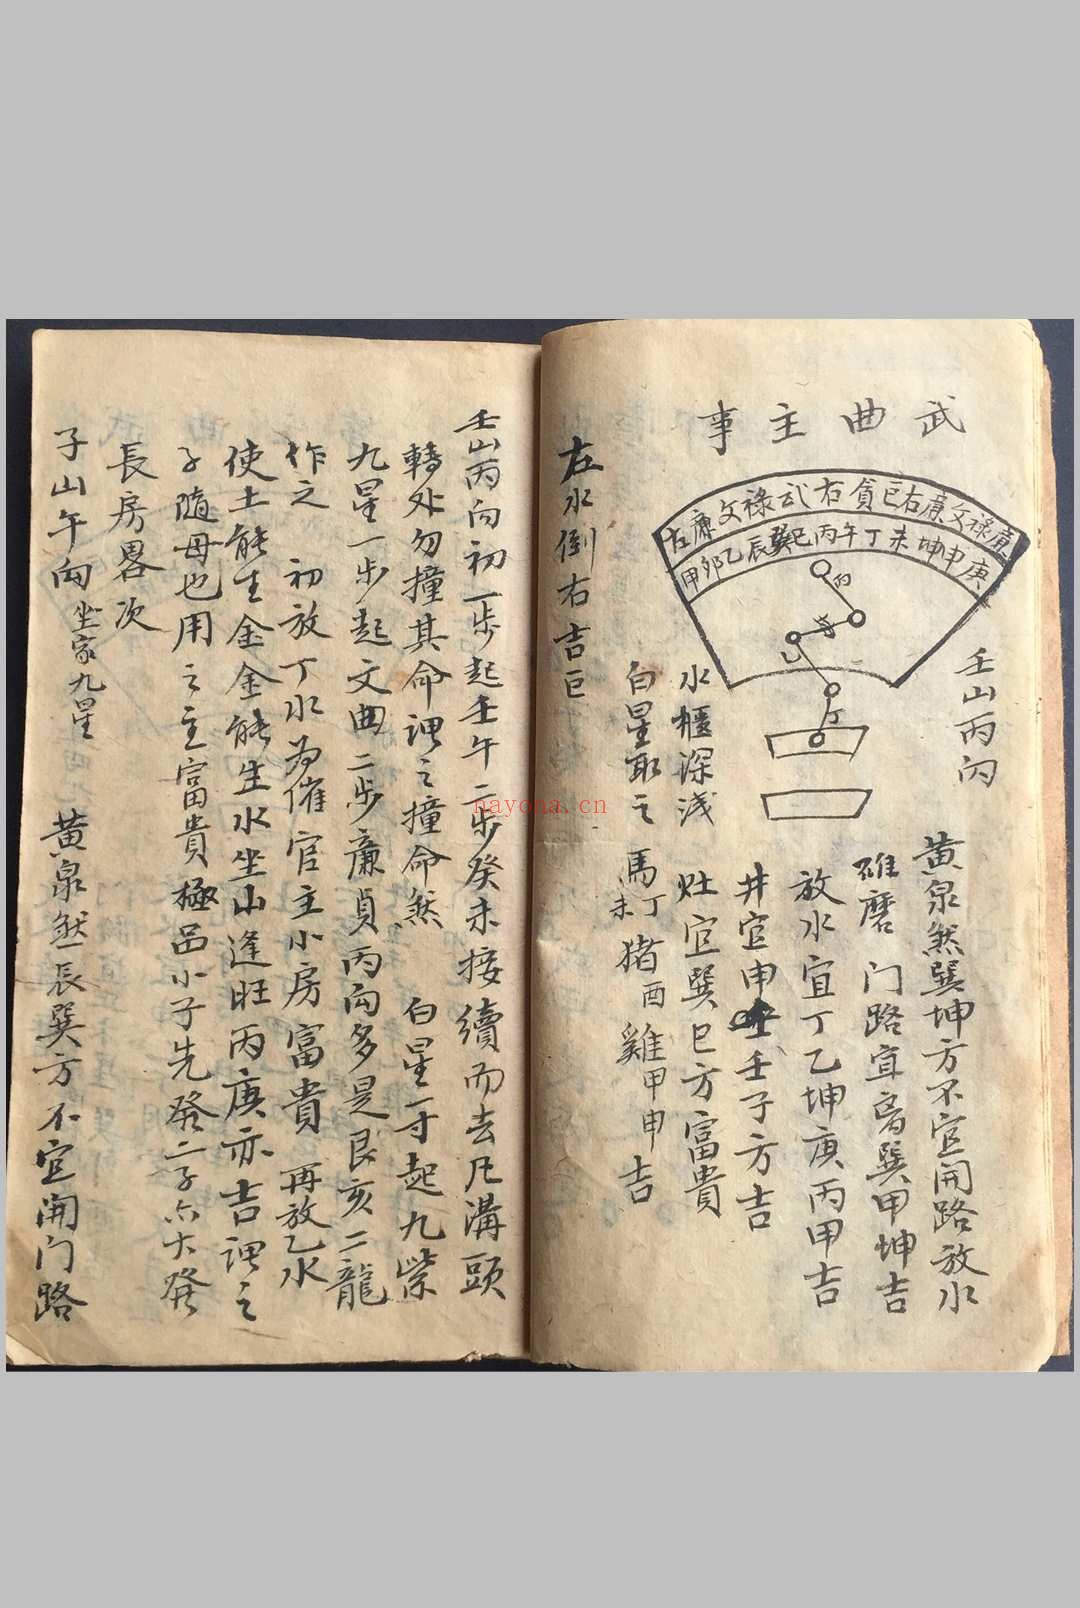 武曲主事
左廉文祿武右貪巨右廉文祿廉
甲卯乙辰巽巳丙午丁未坤申庚
丙
乙
丁
壬山丙向
黄泉煞巽坤方不宜開路放水
碓磨 门路宜离巽甲坤吉
放水宜丁乙坤庚丙甲吉
井宜申壬子方吉
灶宜巽巳方富貴
水櫃深浅
白星取之 馬丁未猪酉雞甲申吉
左水倒右吉巨
壬山丙向初一步起壬午二步癸未接續而去凡溝頭
轉处勿撞其命謂之撞命煞 白星一寸起九紫
九星一步起文曲二步廉貞丙向多是艮亥二龍
作之 初放丁水为催官主小房富貴 再放乙水
使土能生金金能生水坐山逢旺丙庚亦吉謂之
子隨母也用之主富貴極品小子先發二子亦大發
長房畧次
子山午向坐家九星 黄泉煞辰巽方不宜開门路
nayona.cn